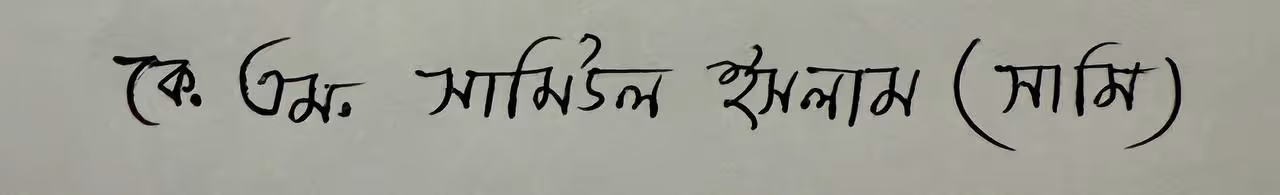 কে. এম. সামিউল ইসলাম (সামি)